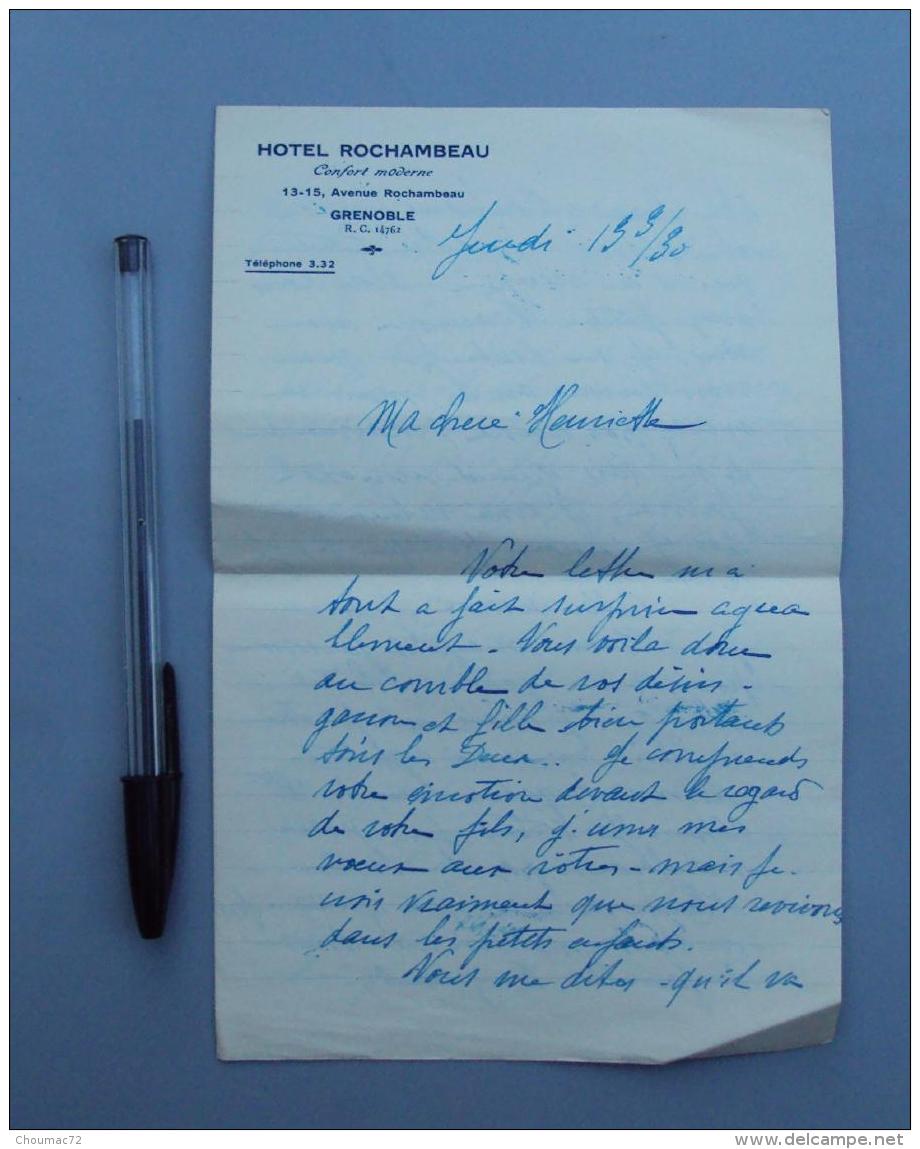 HOTEL ROCHAMBEAU
Confort moderne
13-15, Avenue Rochambeau
GRENOBLE
R. C. 14762
Téléphone 3.32
Jeudi 13 3/30
Ma chere Henriette
Votre lettre m a
tout a fait surprise agrea
blement. Vous voila donc
au comble de vos désirs -
garcon et fille bien portants
tous les Deux.. Je comprends
votre émotion devant le regard
de votre fils, j. unis mes
voeux aux vôtres - mais je
crois vraiment que nous revivons
dans les petits enfants.
Vous me dites - qu'il va
Choumac72
www.delcampe.net